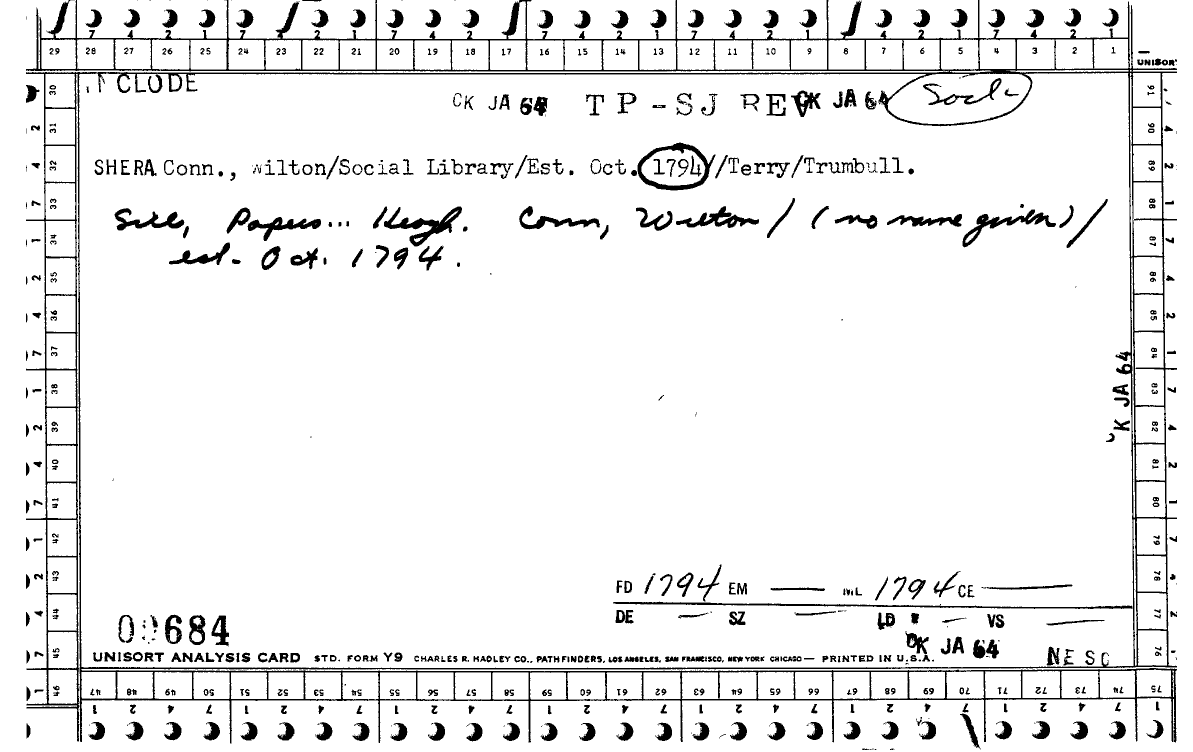 7 4 2 1 7 4 2 1 7 4 2 1 7 4 2 1 7 4 2 1 7 4 2 1
29 28 27 26 25 24 23 22 21 20 19 18 17 16 15 14 13 12 11 10 9 8 7 6 5 4 3 2 1
UNISORT
CLODE
CK JA 64 TP-SJ REV CK JA 64 Socl-
SHERA Conn., wilton/Social Library/Est. Oct. 1794//Terry/Trumbull.
Papers... Keogh. Conn, Wilton / (no name given) /
est. Oct. 1794.
CK JA 64
FD 1794 EM — ML 1794 CE —
DE — SZ — LD — VS —
00684
CK JA 64
UNISORT ANALYSIS CARD STD. FORM Y9 CHARLES R. HADLEY CO., PATHFINDERS, LOS ANGELES, SAN FRANCISCO, NEW YORK CHICAGO — PRINTED IN U.S.A.
NESC
30 31 32 33 34 35 36 37 38 39 40 41 42 43 44 45 46
91 90 89 88 87 86 85 84 83 82 81 80 79 78 77 76 75
47 48 49 50 51 52 53 54 55 56 57 58 59 60 61 62 63 64 65 66 67 68 69 70 71 72 73 74